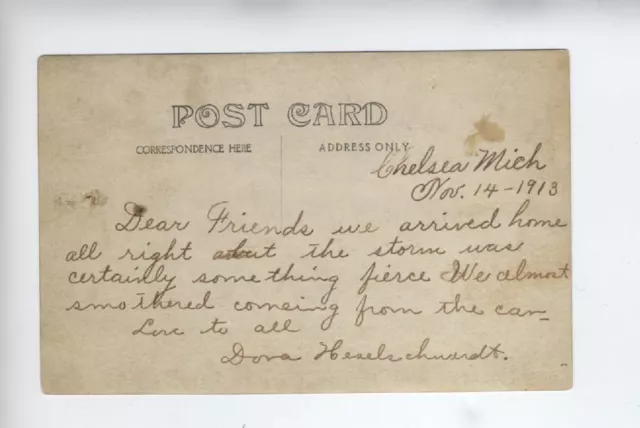 POST CARD
CORRESPONDENCE HERE
ADDRESS ONLY
Chelsea Mich
Nov. 14-1913
Dear Friends we arrived home
all right but the storm was
certainly something fierce We almost
smothered comeing from the car
Love to all
Dora Heselschwerdt.